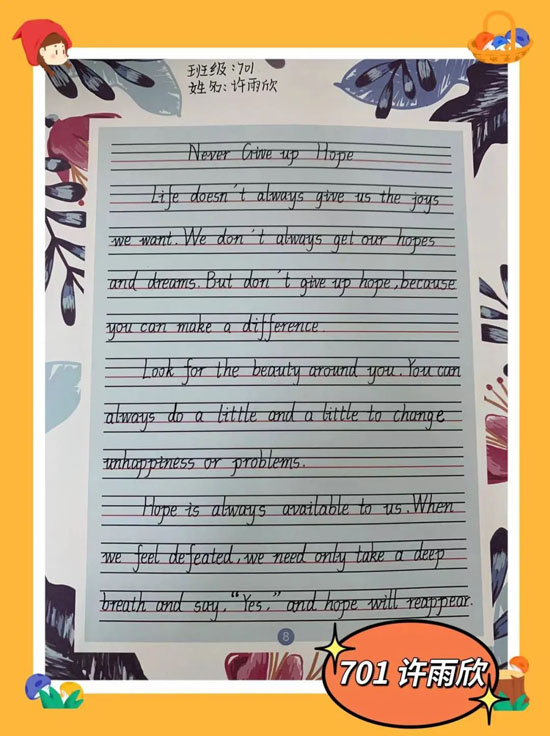 班级:701
姓名:许雨欣
Never Give up Hope
Life doesn't always give us the joys
we want. We don't always get our hopes
and dreams. But don't give up hope, because
you can make a difference.
Look for the beauty around you. You can
always do a little and a little to change
unhappiness or problems.
Hope is always available to us. When
we feel defeated, we need only take a deep
breath and say, "Yes," and hope will reappear.
8
701 许雨欣